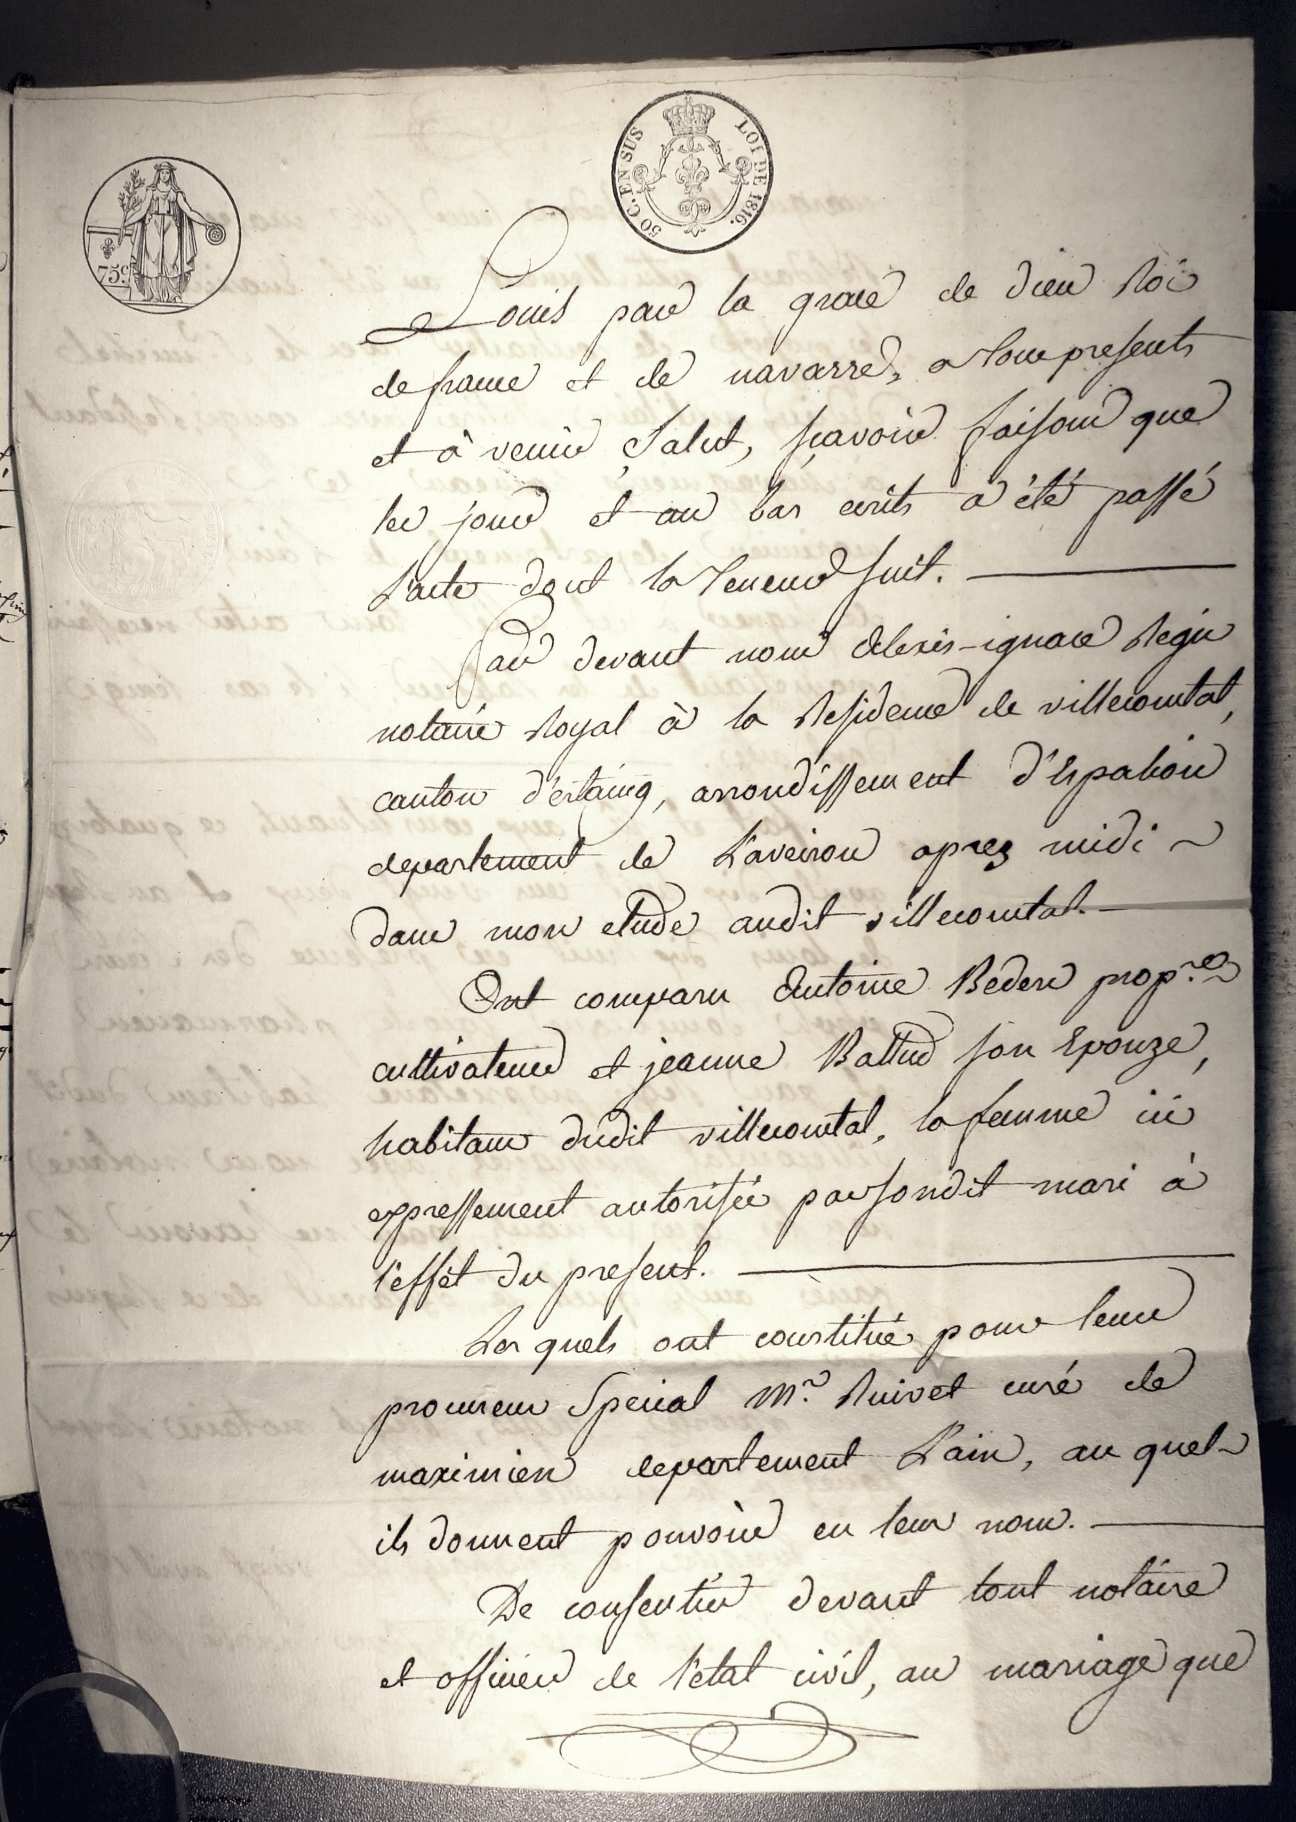 50 C. EN SUS
LOI DE 1816.
75 c.
Louis par la grace de dieu Roi
de france et de navarre, a tous presents
et à venir Salut, sçavoir faisons que
les jour et an bas ecrits a été passé
L'acte dont la teneur suit.
Par devant nous Alexis-ignace Regis
notaire Royal à la Residence de villecomtal,
canton d'estaing, arrondissement d'Espalion
departement de L'aveiron aprez midi
dans mon etude audit villecomtal.
Ont comparu Antoine Bedera prop.re
cultivateur et jeanne Battud son Epouze,
habitans dudit villecomtal, la femme ici
expressement autorisée par sondit mari à
l'effèt du present.
Les quels ont constitué pour leur
procureur Special Mr. Ruivet curé de
maximien departement L'ain, au quel
ils donnent pouvoir en leur nom.
De consentir devant tout notaire
et officier de l'etat civil, au mariage que